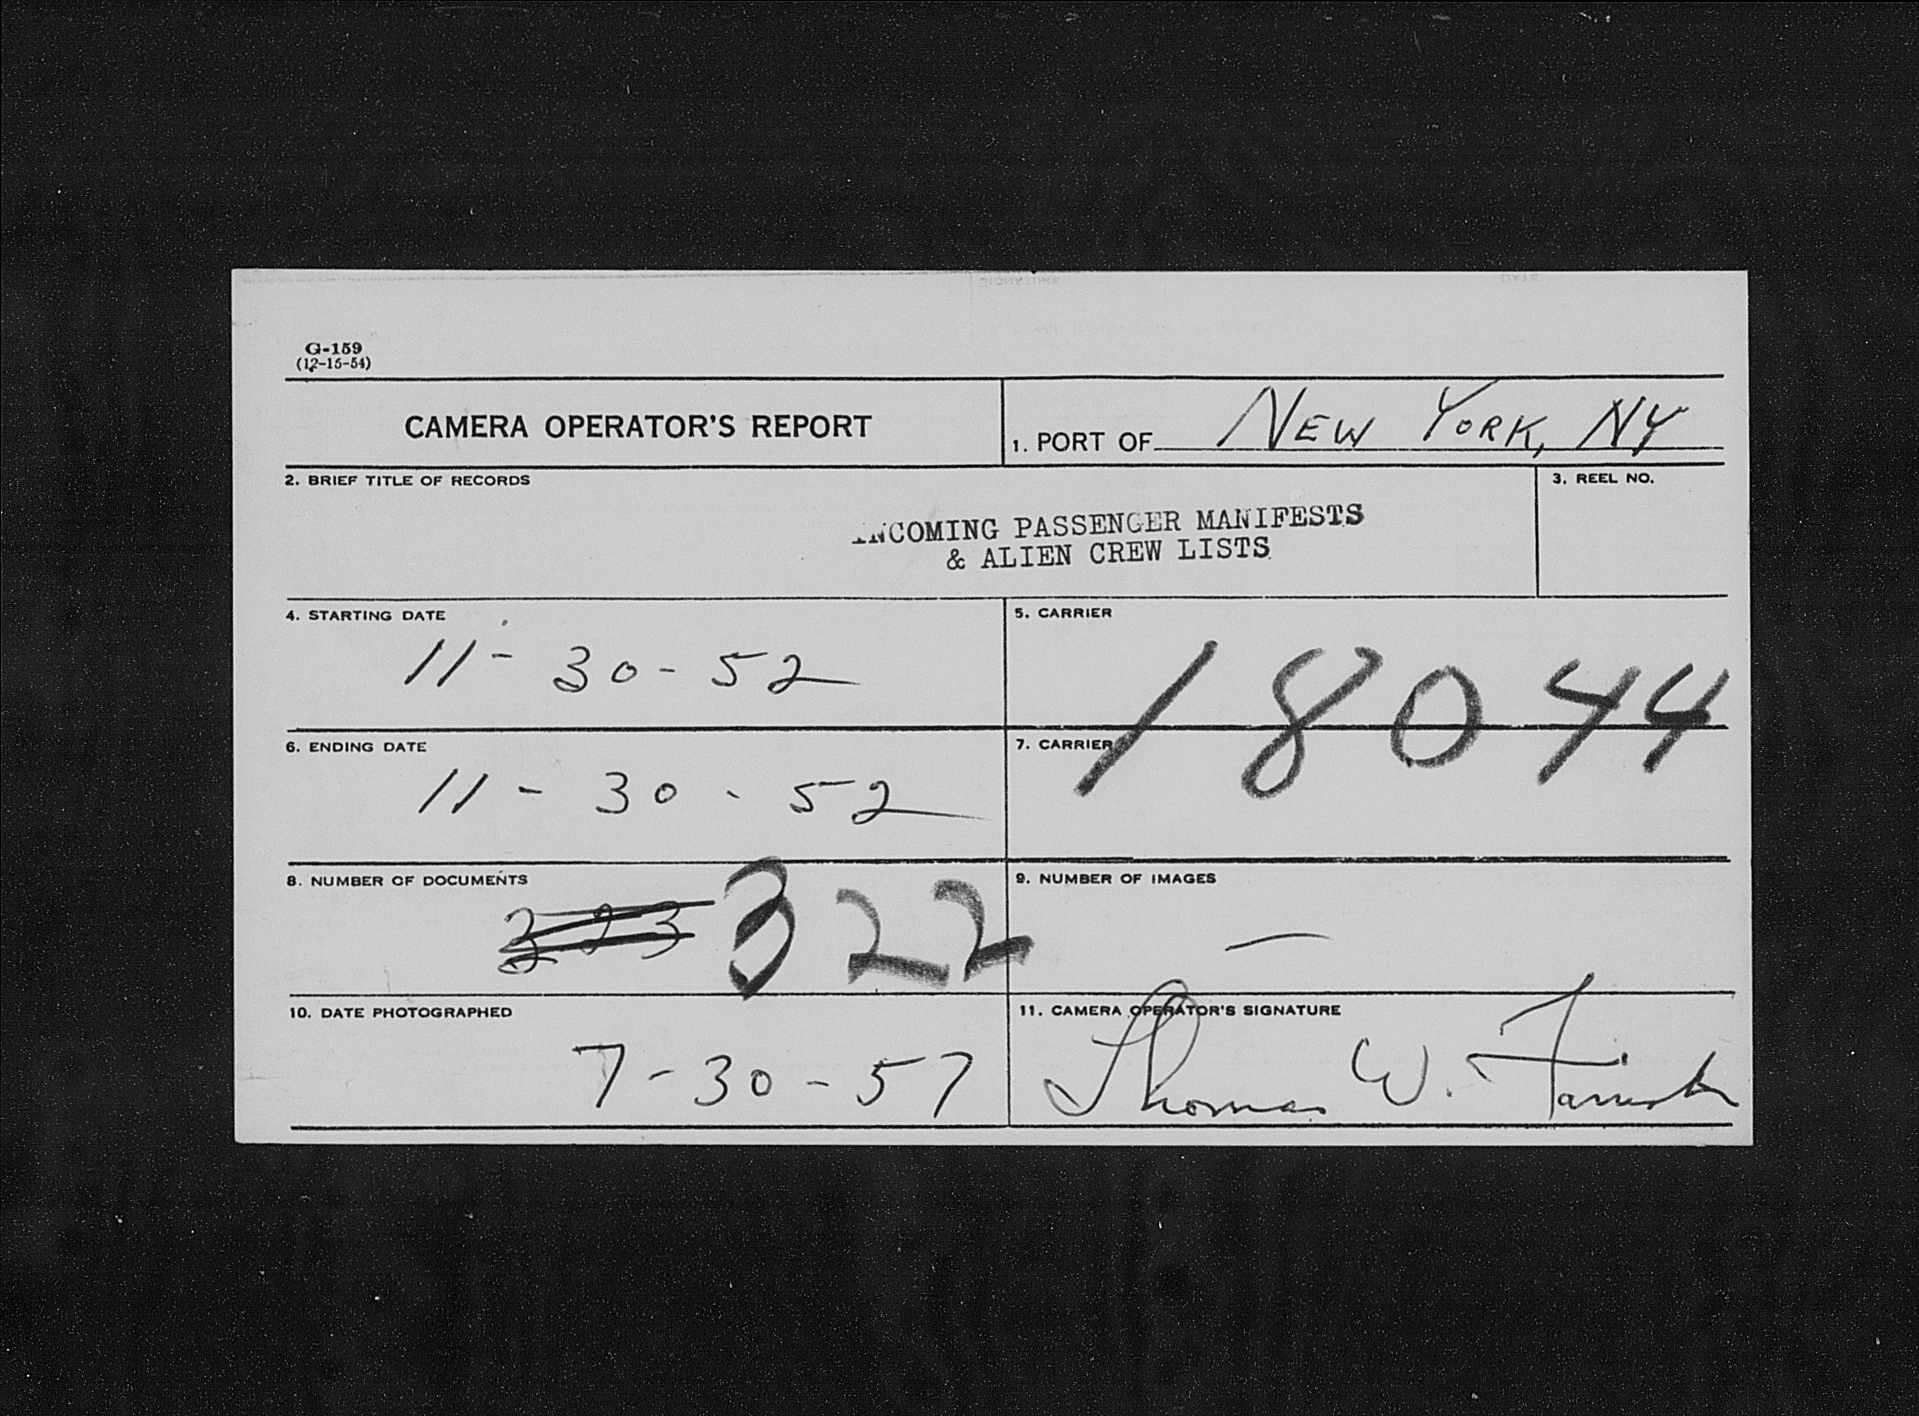 G-159
(12-15-54)
CAMERA OPERATOR'S REPORT
1. PORT OF NEW YORK, NY
2. BRIEF TITLE OF RECORDS
3. REEL NO.
INCOMING PASSENGER MANIFESTS
& ALIEN CREW LISTS
4. STARTING DATE
11-30-52
5. CARRIER
18044
6. ENDING DATE
11-30-52
7. CARRIER
8. NUMBER OF DOCUMENTS
323 322
9. NUMBER OF IMAGES
—
10. DATE PHOTOGRAPHED
7-30-57
11. CAMERA OPERATOR'S SIGNATURE
Thomas W.